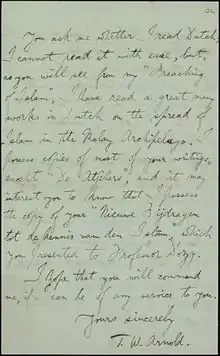 You ask me whether I read Dutch.
I cannot read it with ease, but,
as you will see from my "Preaching
of Islam", I have read a great many
works in Dutch on the spread of
Islam in the Malay Archipelago. I
possess copies of most of your writings,
except "De Atjèhers", and it may
interest you to know that I possess
the copy of your "Nieuwe Bijdragen
tot de Kennis van den Islam", which
you presented to Professor Dozy.
I hope that you will command
me, if I can be of any service to you.
Yours sincerely
T. W. Arnold.